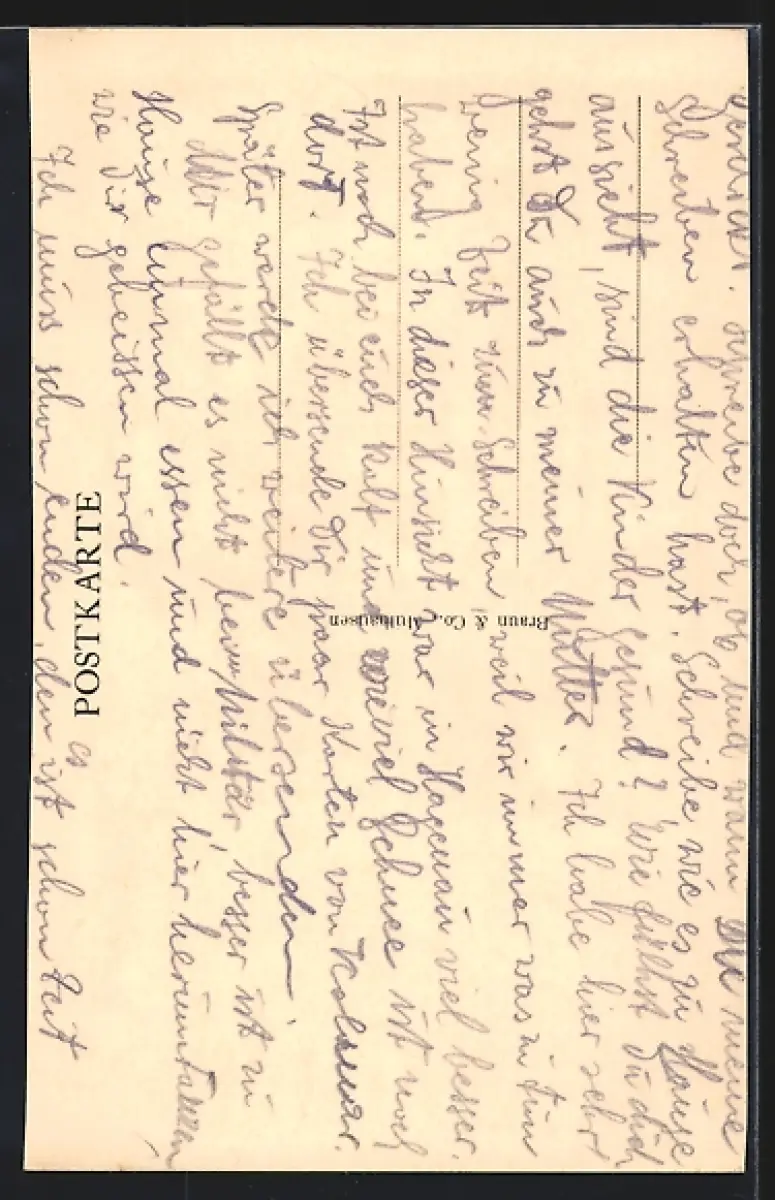 geschickt. Schreibe doch, ob und wann Du meine
Schreiben erhalten hast. Schreibe, wie es zu Hause
aussieht, sind die Kinder gesund? Wie fühlst Du dich
gehst Du auch zu meiner Mutter. Ich habe hier sehr
wenig Zeit zum Schreiben weil wir immer was zu tun
haben. In dieser Hinsicht war in Hagenau viel besser.
Ist noch bei euch kalt und wieviel Schnee ist noch
dort. Ich übersende Dir paar Karten von Kolmar.
Später werde ich weitere übersenden.
Mir gefällt es nicht beim Militär, besser ist zu
Hause einmal essen und nicht hier
wie Dir geheissen wird.
Ich muss schon enden, den es ist schon Zeit
POSTKARTE
Braun & Co., Mülhausen